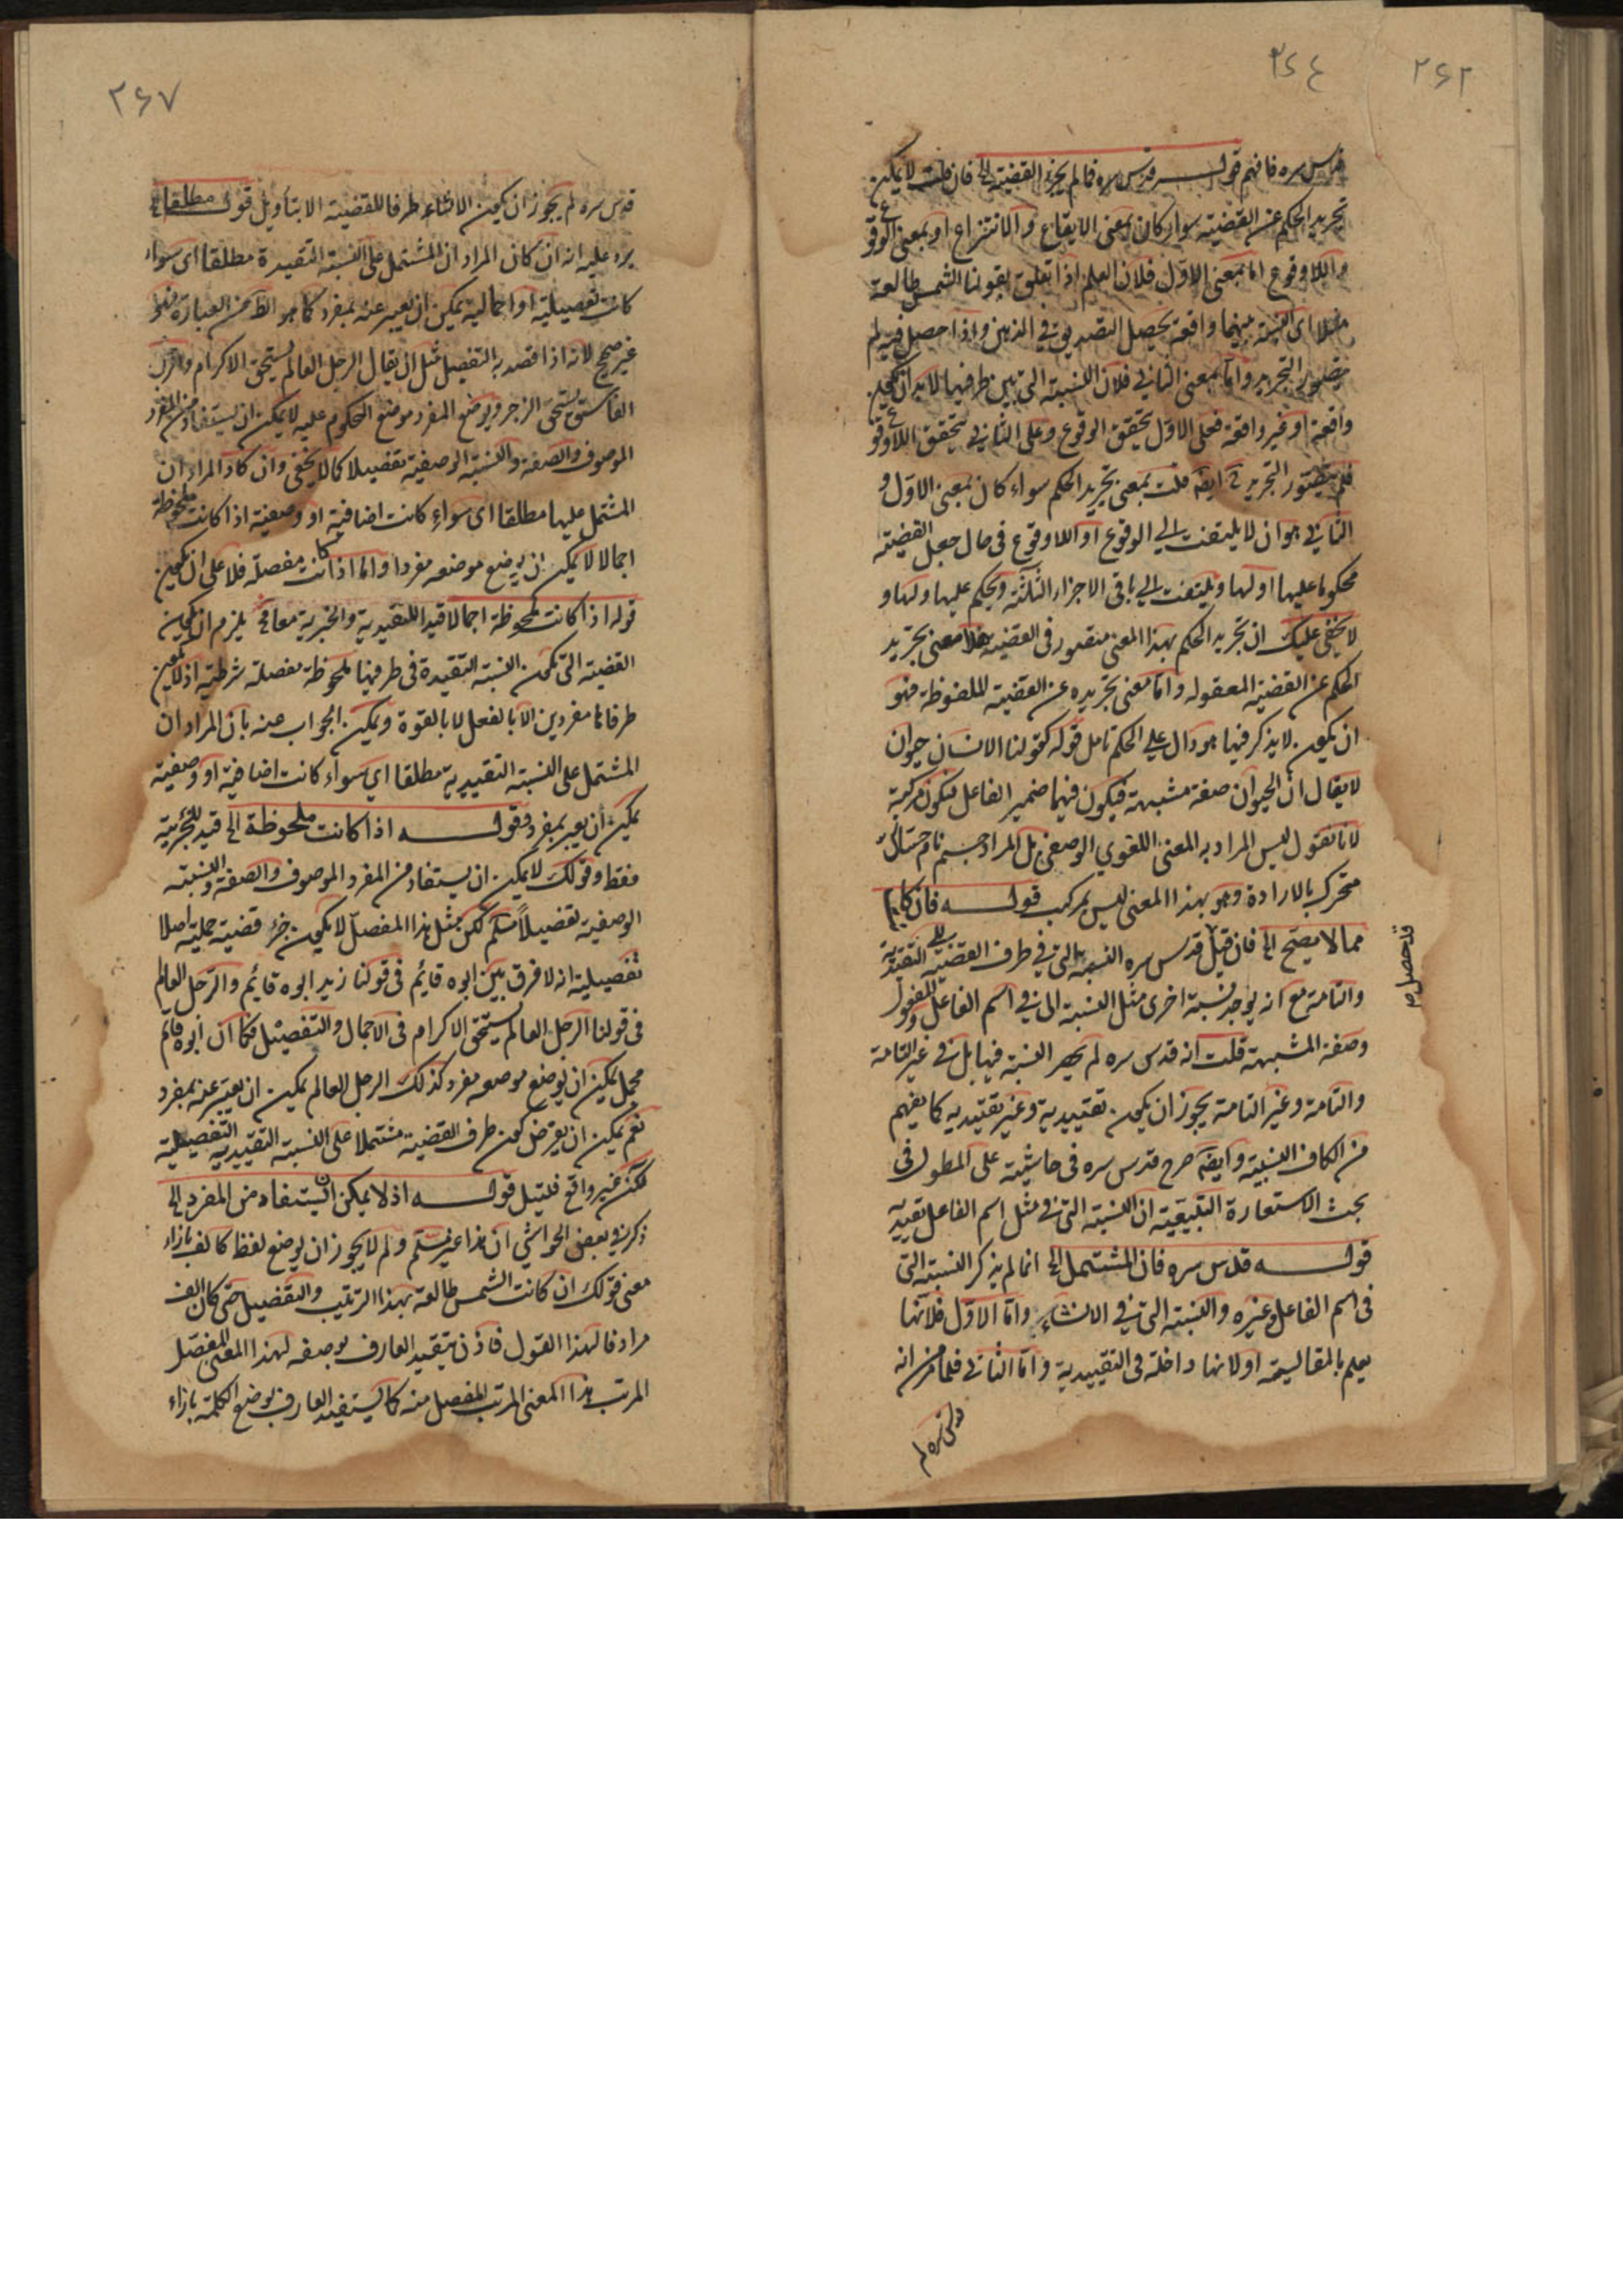 ٢٦٢
٢٦٤
قدس سره فافهم قوله قدس سره فما لم يجرد القضية الخ فان قلت لا يمكن
تجريد الحكم عن القضية سواء كان بمعنى الايقاع والانتزاع او بمعنى الوقوع
واللاوقوع اما بمعنى الاول فلان العلم اذا تعلق بقولنا الشمس طالعة
مثلا اى النسبة بينهما واقعة يحصل التصديق في الذهن واذا حصل فيه لم
يتصور التجريد واما بمعنى الثاني فلان النسبة التي بين طرفيها لا بد ان تكون
واقعة او غير واقعة فعلى الاول تحقق الوقوع وعلى الثاني تحقق اللاوقوع
فلم يتصور التجريد ح ايضا قلت بمعنى تجريد الحكم سواء كان بمعنى الاول و
الثاني هو ان لا يلتفت الى الوقوع او اللاوقوع في حال جعل القضية
محكوما عليها او لها ويلتفت الى باقى الاجزاء الثلثة ويحكم عليها ولها و
لا يخفى عليك ان تجريد الحكم بهذا المعنى متصور في القضية فلا معنى تجريد
الحكم عن القضية المعقوله واما معنى تجريده عن القضية الملفوظة فهو
ان يكون لا يذكر فيها هو دال على الحكم تامل قوله كقولنا الانسان حيوان
لا يقال ان الحيوان صفة مشبهة فيكون فيها ضمير الفاعل فيكون مركبة
لانا نقول ليس المراد به المعنى اللغوي الوصفي بل المراد جسم نام حساس
متحرك بالارادة وهو بهذا المعنى ليس بمركب قوله فان كان
مما لا يصح الخ فان قيل قدس سره النسبة التي في طرف القضية التقييدية
قد حصل
والتامة مع انه يوجد نسبة اخرى مثل النسبة التي في اسم الفاعل والمفعول
وصفة المشبهة قلت انه قدس سره لم يحصر النسبة فيها بل في غير التامة
والتامة وغير التامة يجوز ان يكون تقييدية وغير تقييديه كما يفهم
من الكاف النسبية وايضا صرح قدس سره في حاشية على المطول في
بحث الاستعارة التبعية ان النسبة التي في مثل اسم الفاعل تقييديه
قوله قدس سره فان المشتمل الخ انما لم يذكر النسبة التي
في اسم الفاعل وغيره والنسبة التي في الانشاء واما الاول فلانها
يعلم بالمقايسة او لانها داخلة في التقييدية واما الثاني فلما مر من انه
قدس سره لم
٢٦٧
قدس سره لم يجوز ان يكون الانشاء طرفا للقضية الا بتأويل قوله مطلقا الخ
يرد عليه انه ان كان المراد ان المشتمل على النسبة التقييدة مطلقا اى سواء
كانت تفصيلية او اجمالية يمكن ان يعبر عنه بمفرد كما هو الظ من العبارة فهو
غير صحيح لانه اذا قصد به التفصيل مثل ان يقال الرجل العالم يستحق الاكرام والرجل
الفاسق يستحق الزجر ويوضع المفرد موضع المحكوم عليه لا يمكن ان يستفاد من المفرد
الموصوف والصفة والنسبة الوصفية تفصيلا كما لا يخفى وان كان المراد ان
المشتمل عليها مطلقا اى سواء كانت اضافية او وصفية اذا كانت ملحوظة
اجمالا لا يمكن ان يوضع موضعه مفردا واما اذا كانت مفصلة فلا على ان يكون
قوله اذا كانت ملحوظة اجمالا قيدا للتقيدية والخبرية معا فح يلزم ان يكون
القضية التي تكون النسبة التقيدة في طرفيها ملحوظة مفصلة شرطية اذ لا يكون
طرفاها مفردين الا بالفعل لا بالقوة ويمكن الجواب عنه بان المراد ان
المشتمل على النسبة التقييدية مطلقا اي سواء كانت اضافية او وصفية
يمكن ان يعبر بمفرد وقوله اذا كانت ملحوظة الخ قيد للخبرية
فقط وقولك لا يمكن ان يستفاد من المفرد الموصوف والصفة والنسبة
الوصفية تفصيلا مسلم لكن مثل هذا المفصل لا يكون جزء قضية حملية اصلا
تفصيلية انه لا فرق بين ابوه قايم في قولنا زيد ابوه قايم والرجل العالم
في قولنا الرجل العالم يستحق الاكرام في الاجمال والتفصيل فكما ان ابوه قايم
مجمل يمكن ان يوضع موضعه مفرد كذلك الرجل العالم يمكن ان يعبر عنه بمفرد
نعم يمكن ان يفرض كون طرف القضية مشتملا على النسبة التقييدية التفصيلية
لكن غير واقع فليتأمل قوله اذ لا يمكن ان يستفاد من المفرد الخ
ذكر في بعض الحواشي ان هذا غير مسلم ولم لا يجوز ان يوضع لفظ كالف بازاء
معنى قولك ان كانت الشمس طالعة بهذا الترتيب والتفصيل حتى كان الف
مرادفا لهذا القول فاذن يفيد العارف بوصفه لهذا المعنى المفصل
المرتب هذا المعنى المرتب المفصل منه كما يستفيد العارف بوضع الكلمة بازاء